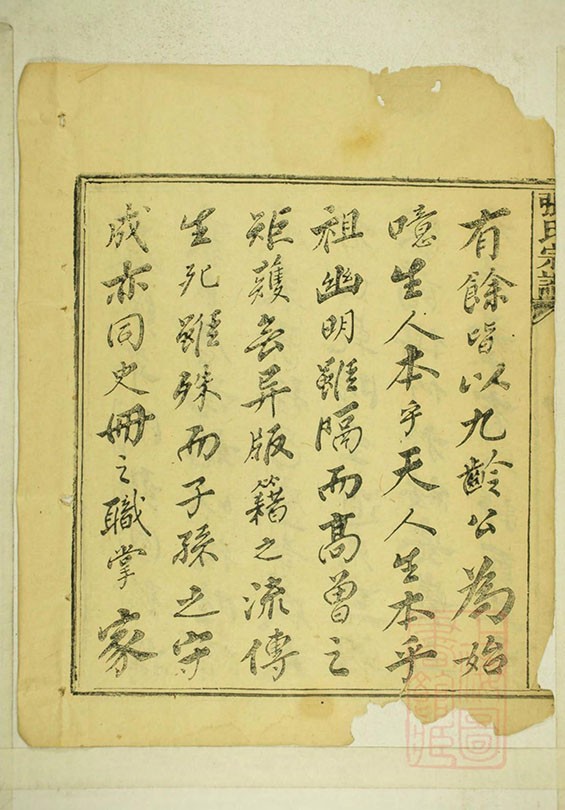 張氏宗譜
有餘皆以九齡公為始
噫生人本乎天人生本乎
祖幽明雖隔而髙曾之
矩矱無异版籍之流傳
生死雖殊而子孫之守
成亦同史冊之職掌家